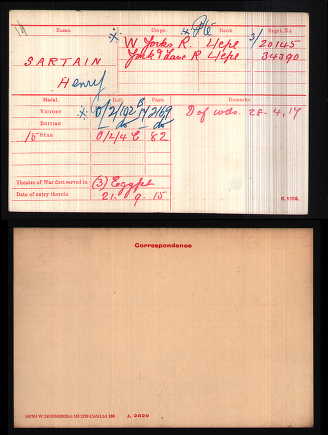 Name. Corps. Rank. Regtl. No.
* Pte
* W. Yorks. R. L/Cpl 3/20145
SARTAIN York & Lanc R L/Cpl 34390
Henry
Medal. Roll. Page. Remarks.
Victory * 0/2/102 2169 D of wds. 28.4.17
British - do - do
15 Star 0/2/4 C 82
Theatre of War first served in (3) Egypt
Date of entry therein 21. 9. 15
Correspondence.